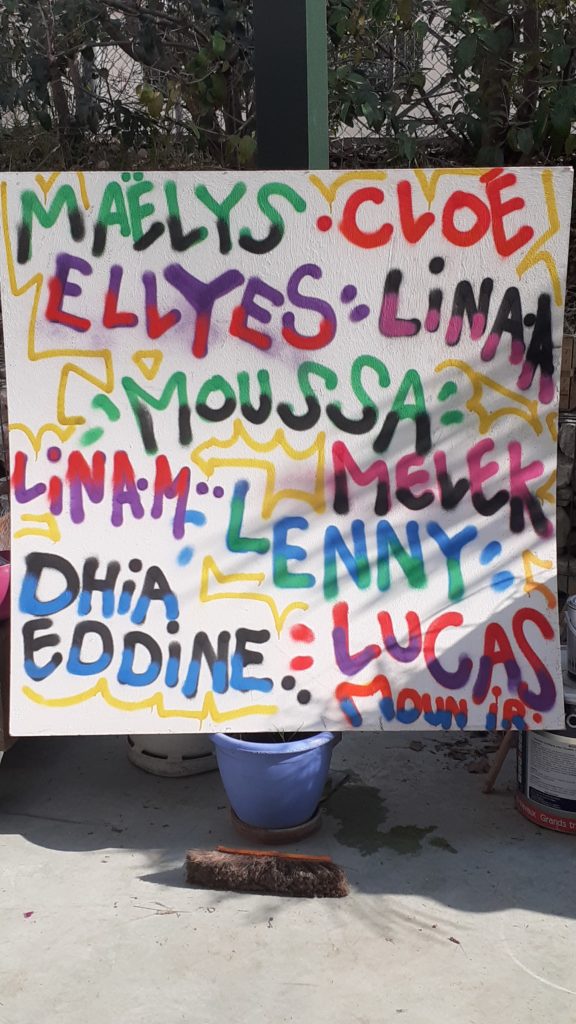 MAËLYS · CLOÉ
ELLYES : LiNA·A
MOUSSA
LiNA·M·· MELEK
LENNY
DHiA
EDDiNE : LUCAS
MOUNÏR·
Grands